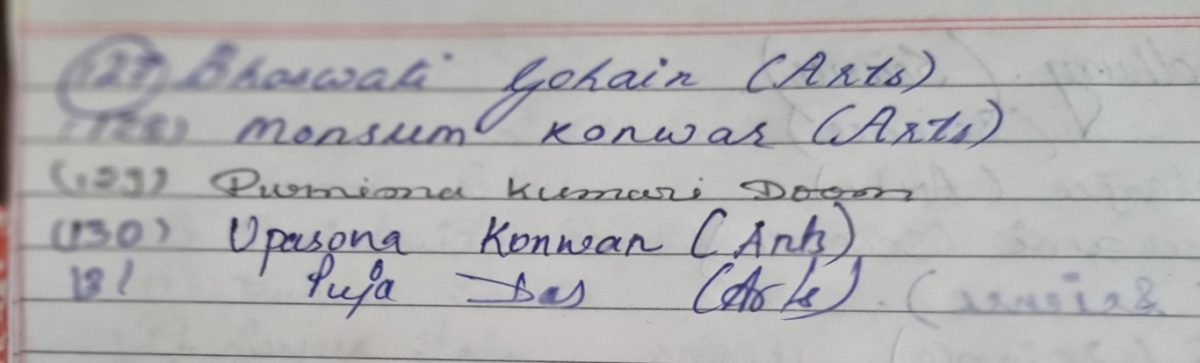 (127) Bhaswati Gohain (Arts)
(128) Monsum Konwar (Arts)
(129) Purniona Kumari Doom
(130) Upasona Konwar (Arts)
131 Puja Das (Arts)